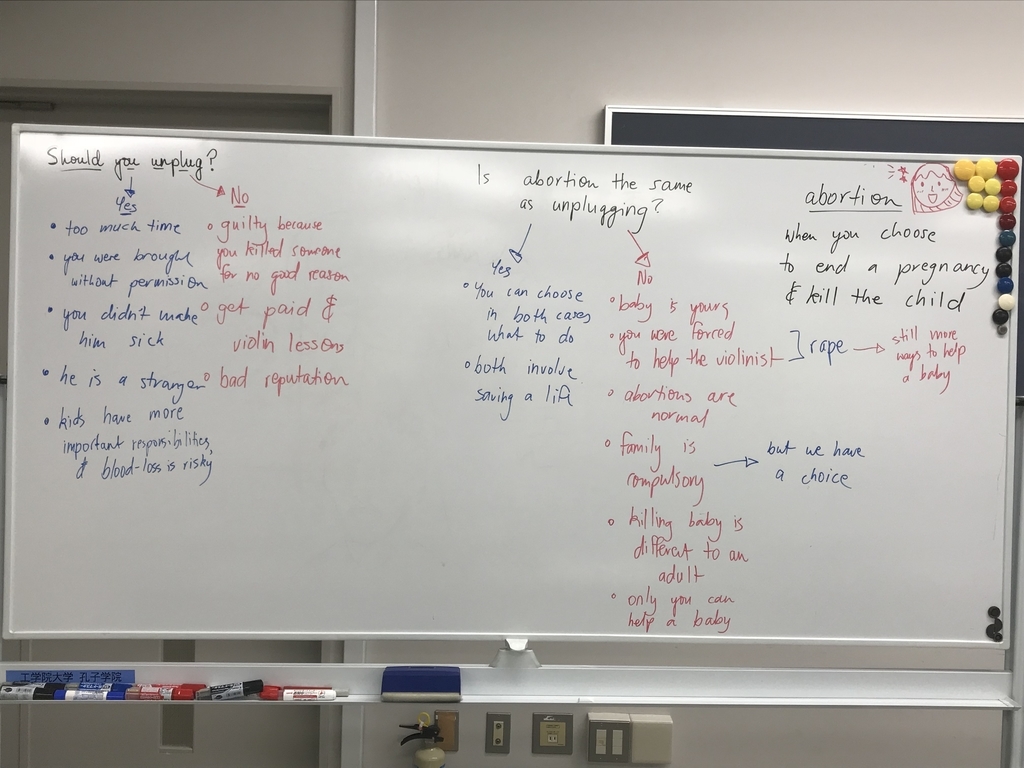 Should you unplug?
Yes
• too much time
• you were brought
without permission
• you didn't make
him sick
• he is a stranger
• kids have more
important responsibilities,
& blood-loss is risky
No
• guilty because
you killed someone
for no good reason
• get paid &
violin lessons
• bad reputation
Is abortion the same
as unplugging?
Yes
• You can choose
in both cases
what to do
• both involve
saving a life
No
• baby is yours
• you were forced
to help the violinist
] rape → still more
ways to help
a baby
• abortions are
normal
• family is
compulsory
→ but we have
a choice
• killing baby is
different to an
adult
• only you can
help a baby
abortion
when you choose
to end a pregnancy
& kill the child
工学院大学 孔子学院